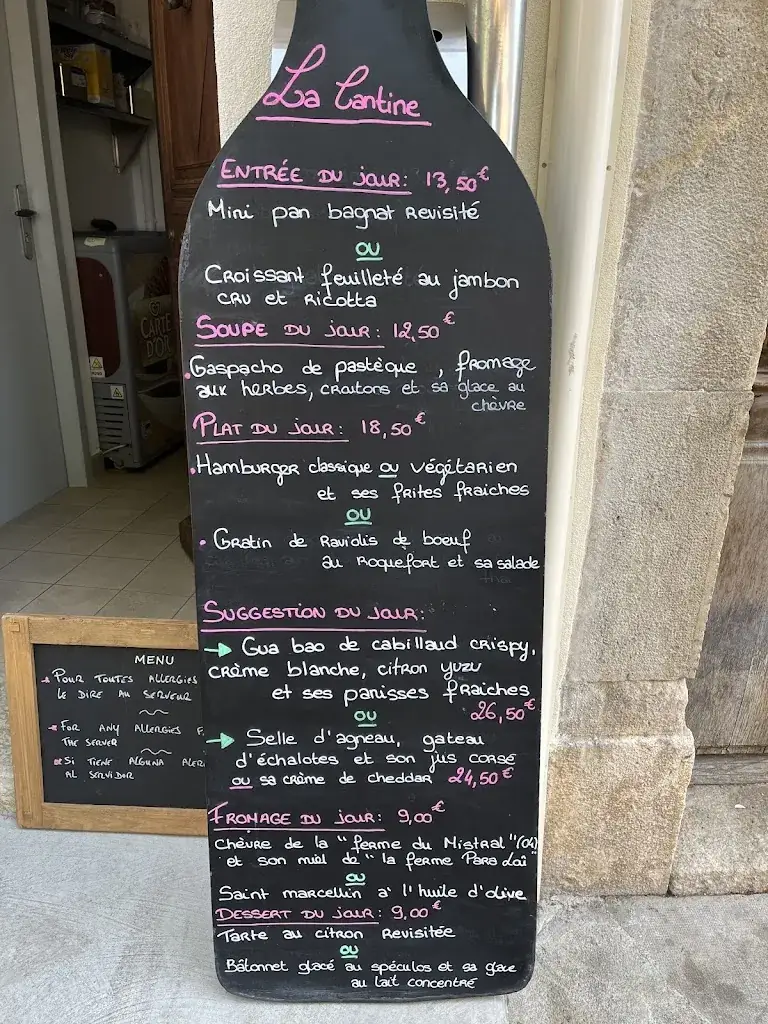 La Cantine
ENTRÉE DU JOUR: 13,50€
Mini pan bagnat Revisité
OU
Croissant feuilleté au jambon
CRU et Ricotta
SOUPE DU JOUR: 12,50€
Gaspacho de pastèque, fromage
aux herbes, croutons et sa glace au
chèvre
PLAT DU JOUR: 18,50€
Hamburger classique ou végétarien
et ses frites fraiches
OU
Gratin de Raviolis de boeuf
au Roquefort et sa salade
SUGGESTION DU JOUR:
Gua bao de cabillaud crispy,
crème blanche, citron yuzu
et ses panisses fraiches
26,50€
OU
Selle d'agneau, gateau
d'échalotes et son jus corsé
ou sa crème de cheddar 24,50€
FROMAGE DU JOUR: 9,00€
Chèvre de la "ferme du Mistral"(04)
et son miel de "la ferme Para Loï"
OU
Saint marcellin a' l'huile d'olive
DESSERT DU JOUR: 9,00€
Tarte au citron Revisitée
OU
Bâtonnet glacé au spéculos et sa glace
au lait concentré
MENU
POUR TOUTES ALLERGIES
LE DIRE AU SERVEUR
FOR ANY ALLERGIES F
THE SERVER
SI TIENE ALGUNA ALER
AL SERVIDOR
CARTE
D'OR